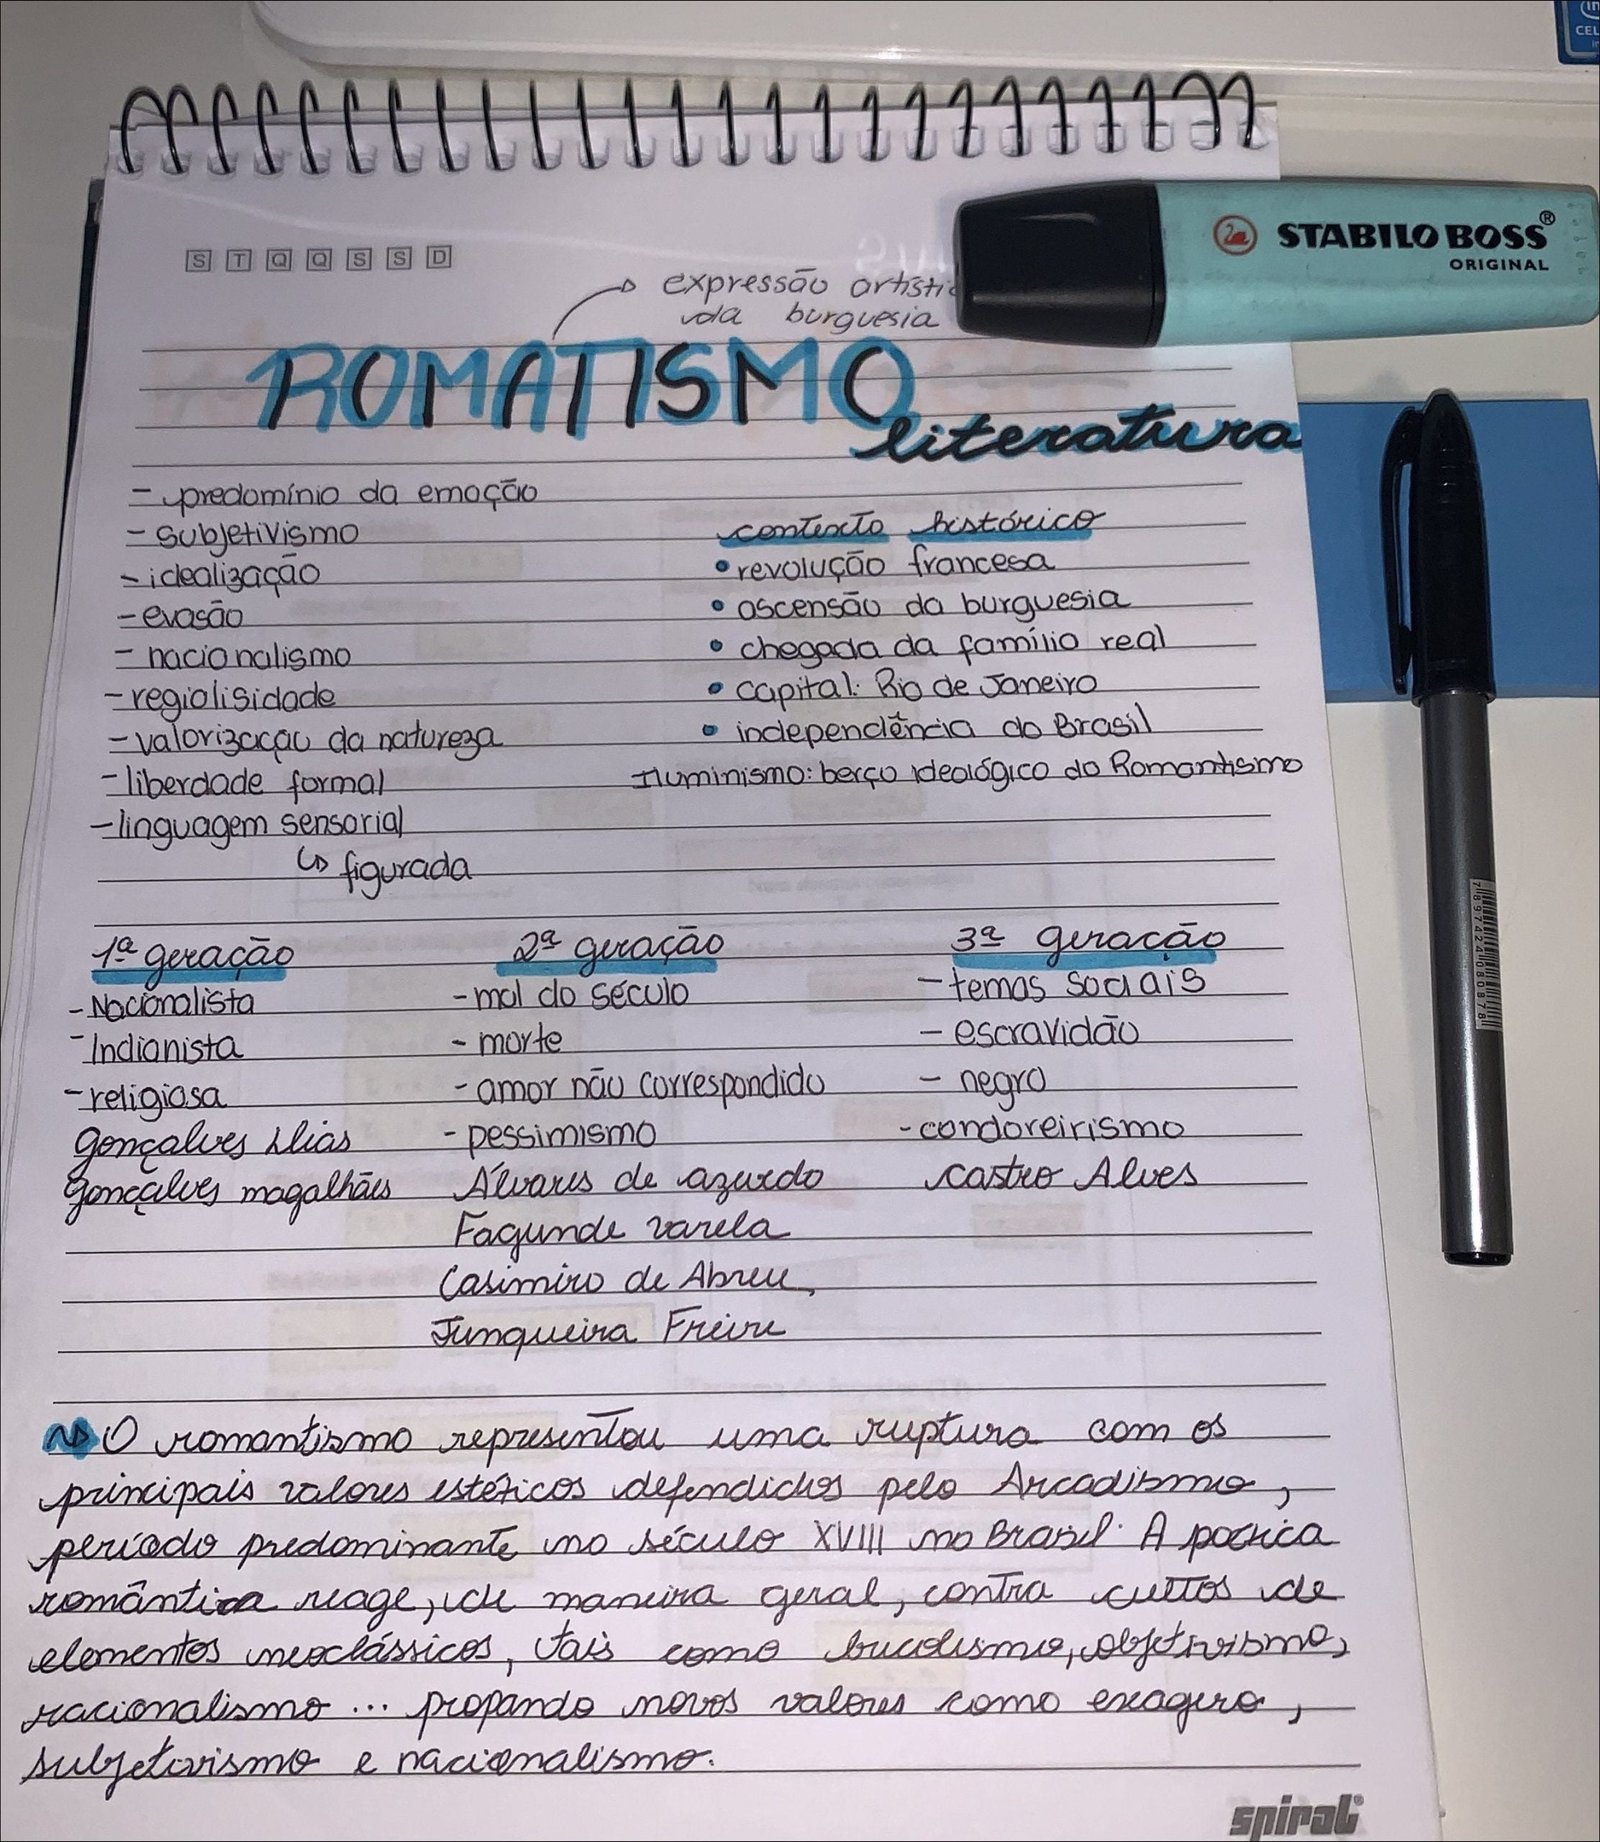 CEL
S T Q Q S S D
expressão artístic
da burguesia
STABILO BOSS®
ORIGINAL
ROMATISMO
literatura
- predomínio da emoção
- subjetivismo
- idealização
- evasão
- nacionalismo
- regiolisidade
- valorização da natureza
- liberdade formal
- linguagem sensorial
↳ figurada
contexto histórico
• revolução francesa
• ascensão da burguesia
• chegada da família real
• capital: Rio de Janeiro
• independência do Brasil
Iluminismo: berço ideológico do Romantismo
1ª geração
- Nacionalista
- Indianista
- religiosa
Gonçalves Dias
gonçalves magalhães
2ª geração
- mal do século
- morte
- amor não correspondido
- pessimismo
Álvares de azevedo
Fagunde varela
Casimiro de Abreu,
Junqueira Freire
3ª geração
- temas sociais
- escravidão
- negro
- condoreirismo
Castro Alves
O romantismo representou uma ruptura com os
principais valores estéticos defendidos pelo Arcadismo,
período predominante no século XVIII no Brasil. A poética
romântica reage, de maneira geral, contra cultos de
elementos neoclássicos, tais como bucolismo, objetivismo,
racionalismo ... propando novos valores como exagero,
subjetivismo e nacionalismo.
7897424080878
spiral®